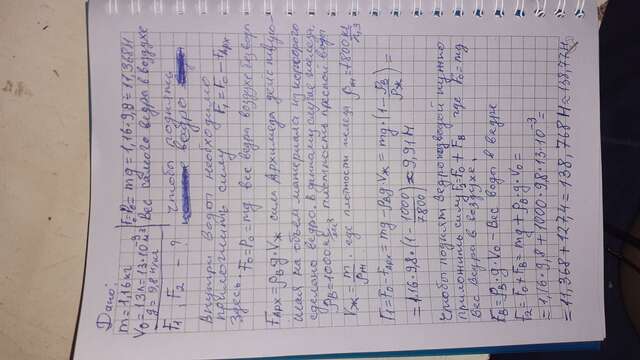 Дано:
m = 1,16 кг
V₀ = 13л = 13·10⁻³ м³
g = 9,8 н/кг
F₁, F₂ - ?
F₀ = P₀ = mg = 1,16·9,8 = 11,368 Н
Вес самого ведра в воздухе
Чтобы поднять
ведро
Внутри воды необходимо
приложить силу F₁ = F₀ - Fарх
Здесь F₀ = P₀ = mg вес ведра воздухе
Fарх = ρв g·Vж сила Архимеда действую-
щая на объем материала из которого
сделано ведро, в данном случае железо.
ρв = 1000 кг/м³ плотность пресной воды
Vж = m/ρж где плотность железа ρж = 7800 кг/м³
F₁ = F₀ - Fарх = mg - ρв g Vж = mg·(1 - ρв/ρж) =
= 1,16·9,8·(1 - 1000/7800) ≈ 9,91 Н
Чтобы поднять ведро водой нужно
приложить силу F₂ = F₀ + Fв где F₀ = mg
Вес ведра в воздухе,
Fв = ρв g·V₀ Вес воды в ведре
F₂ = F₀ + Fв = mg + ρв g·V₀ =
= 1,16·9,8 + 1000·9,8·13·10⁻³ =
= 11,368 + 127,4 = 138,768 Н ≈ 138,77 Н